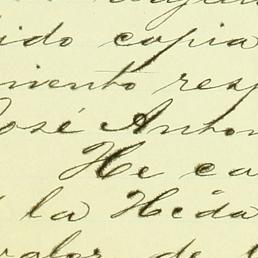 ido copia
miento resp
José Anton
He ca
la Heda
valor de l